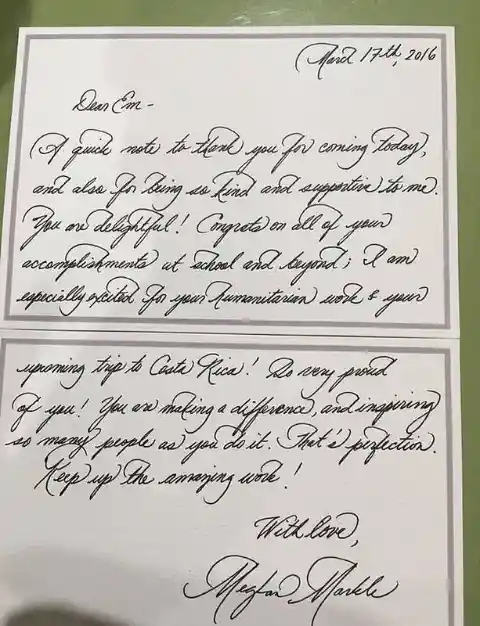 March 17th, 2016
Dear Em -
A quick note to thank you for coming today,
and also for being so kind and supportive to me.
You are delightful! Congrats on all of your
accomplishments at school and beyond; I am
especially excited for your humanitarian work & your
upcoming trip to Costa Rica! So very proud
of you! You are making a difference, and inspiring
so many people as you do it. That's perfection.
Keep up the amazing work!
With love,
Meghan Markle